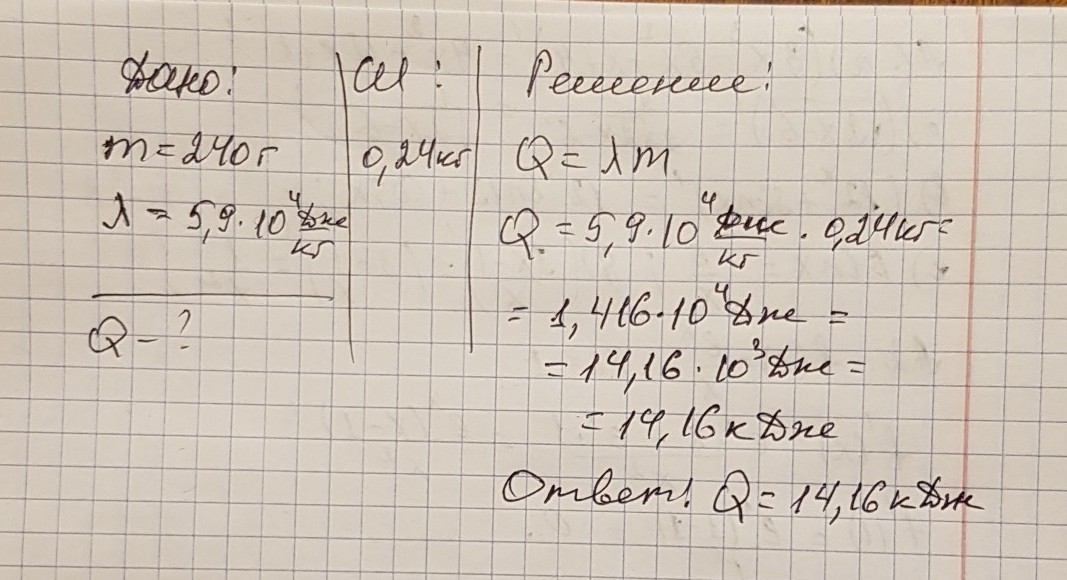 Дано:
СИ:
Решение:
m = 240 г
0,24 кг
Q = λm
λ = 5,9·10⁴ Дж/кг
Q = 5,9·10⁴ Дж/кг · 0,24 кг =
= 1,416·10⁴ Дж =
= 14,16·10³ Дж =
= 14,16 кДж
Q - ?
Ответ: Q = 14,16 кДж